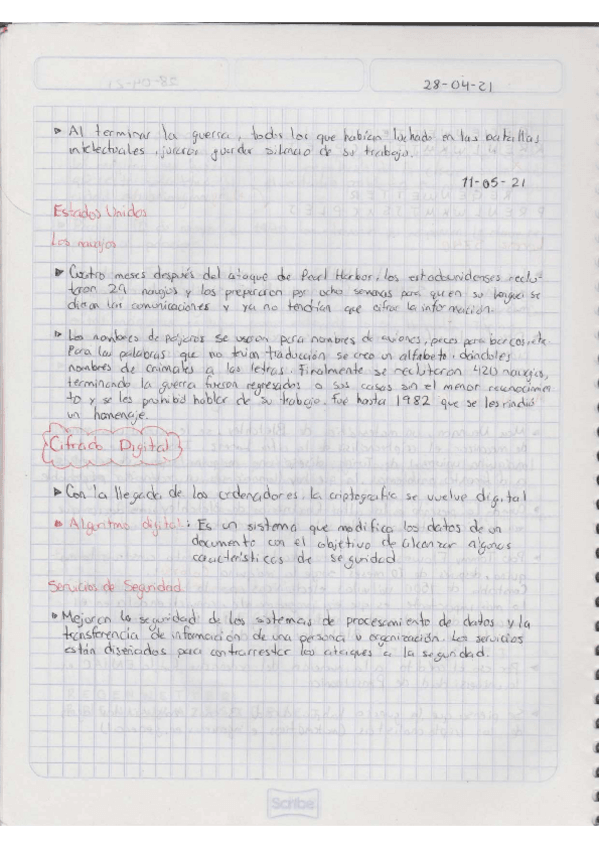 28-04-21
▸ Al terminar la guerra, todos los que habían luchado en las batallas
intelectuales, juraron guardar silencio de su trabajo.
11-05-21
Estados Unidos
Los navajos
▸ Cuatro meses después del ataque de Pearl Harbor, los estadounidenses reclu-
taron 29 navajos y los prepararon por ocho semanas para que en su lengua se
dieran las comunicaciones y ya no tendrían que cifrar la información.
▸ Los nombres de pájaros se usaron para nombres de aviones, peces para barcos, etc.
Para las palabras que no tenían traducción se creo un alfabeto, dándoles
nombres de animales a las letras. Finalmente se reclutaron 420 navajos,
terminando la guerra fueron regresados a sus casas sin el menor reconocimien
to y se les prohibió hablar de su trabajo. Fue hasta 1982 que se les rindió
un homenaje.
Cifrado Digital
▸ Con la llegada de los ordenadores, la criptografía se vuelve digital
▸ Algoritmo digital: Es un sistema que modifica los datos de un
documento con el objetivo de alcanzar algunas
características de seguridad
Servicios de Seguridad
▸ Mejoran la seguridad de los sistemas de procesamiento de datos y la
transferencia de información de una persona u organización. Los servicios
están diseñados para contrarrestar los ataques a la seguridad.
Scribe